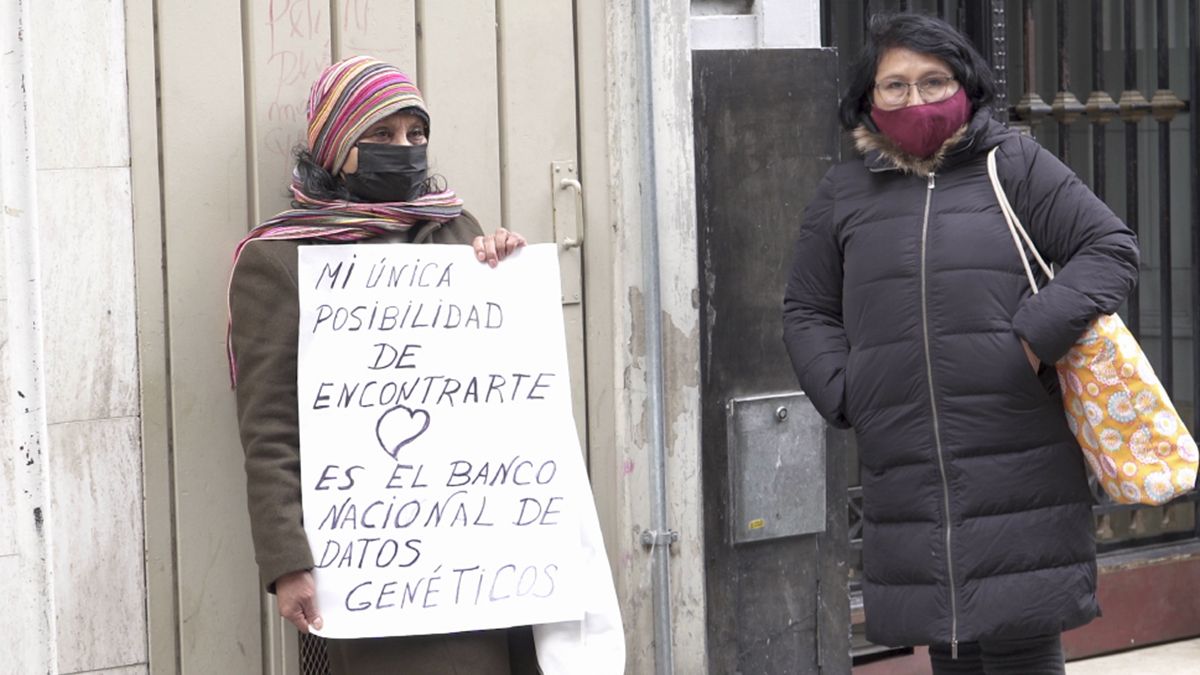 MI ÚNICA
POSIBILIDAD
DE
ENCONTRARTE
ES EL BANCO
NACIONAL DE
DATOS
GENÉTICOS